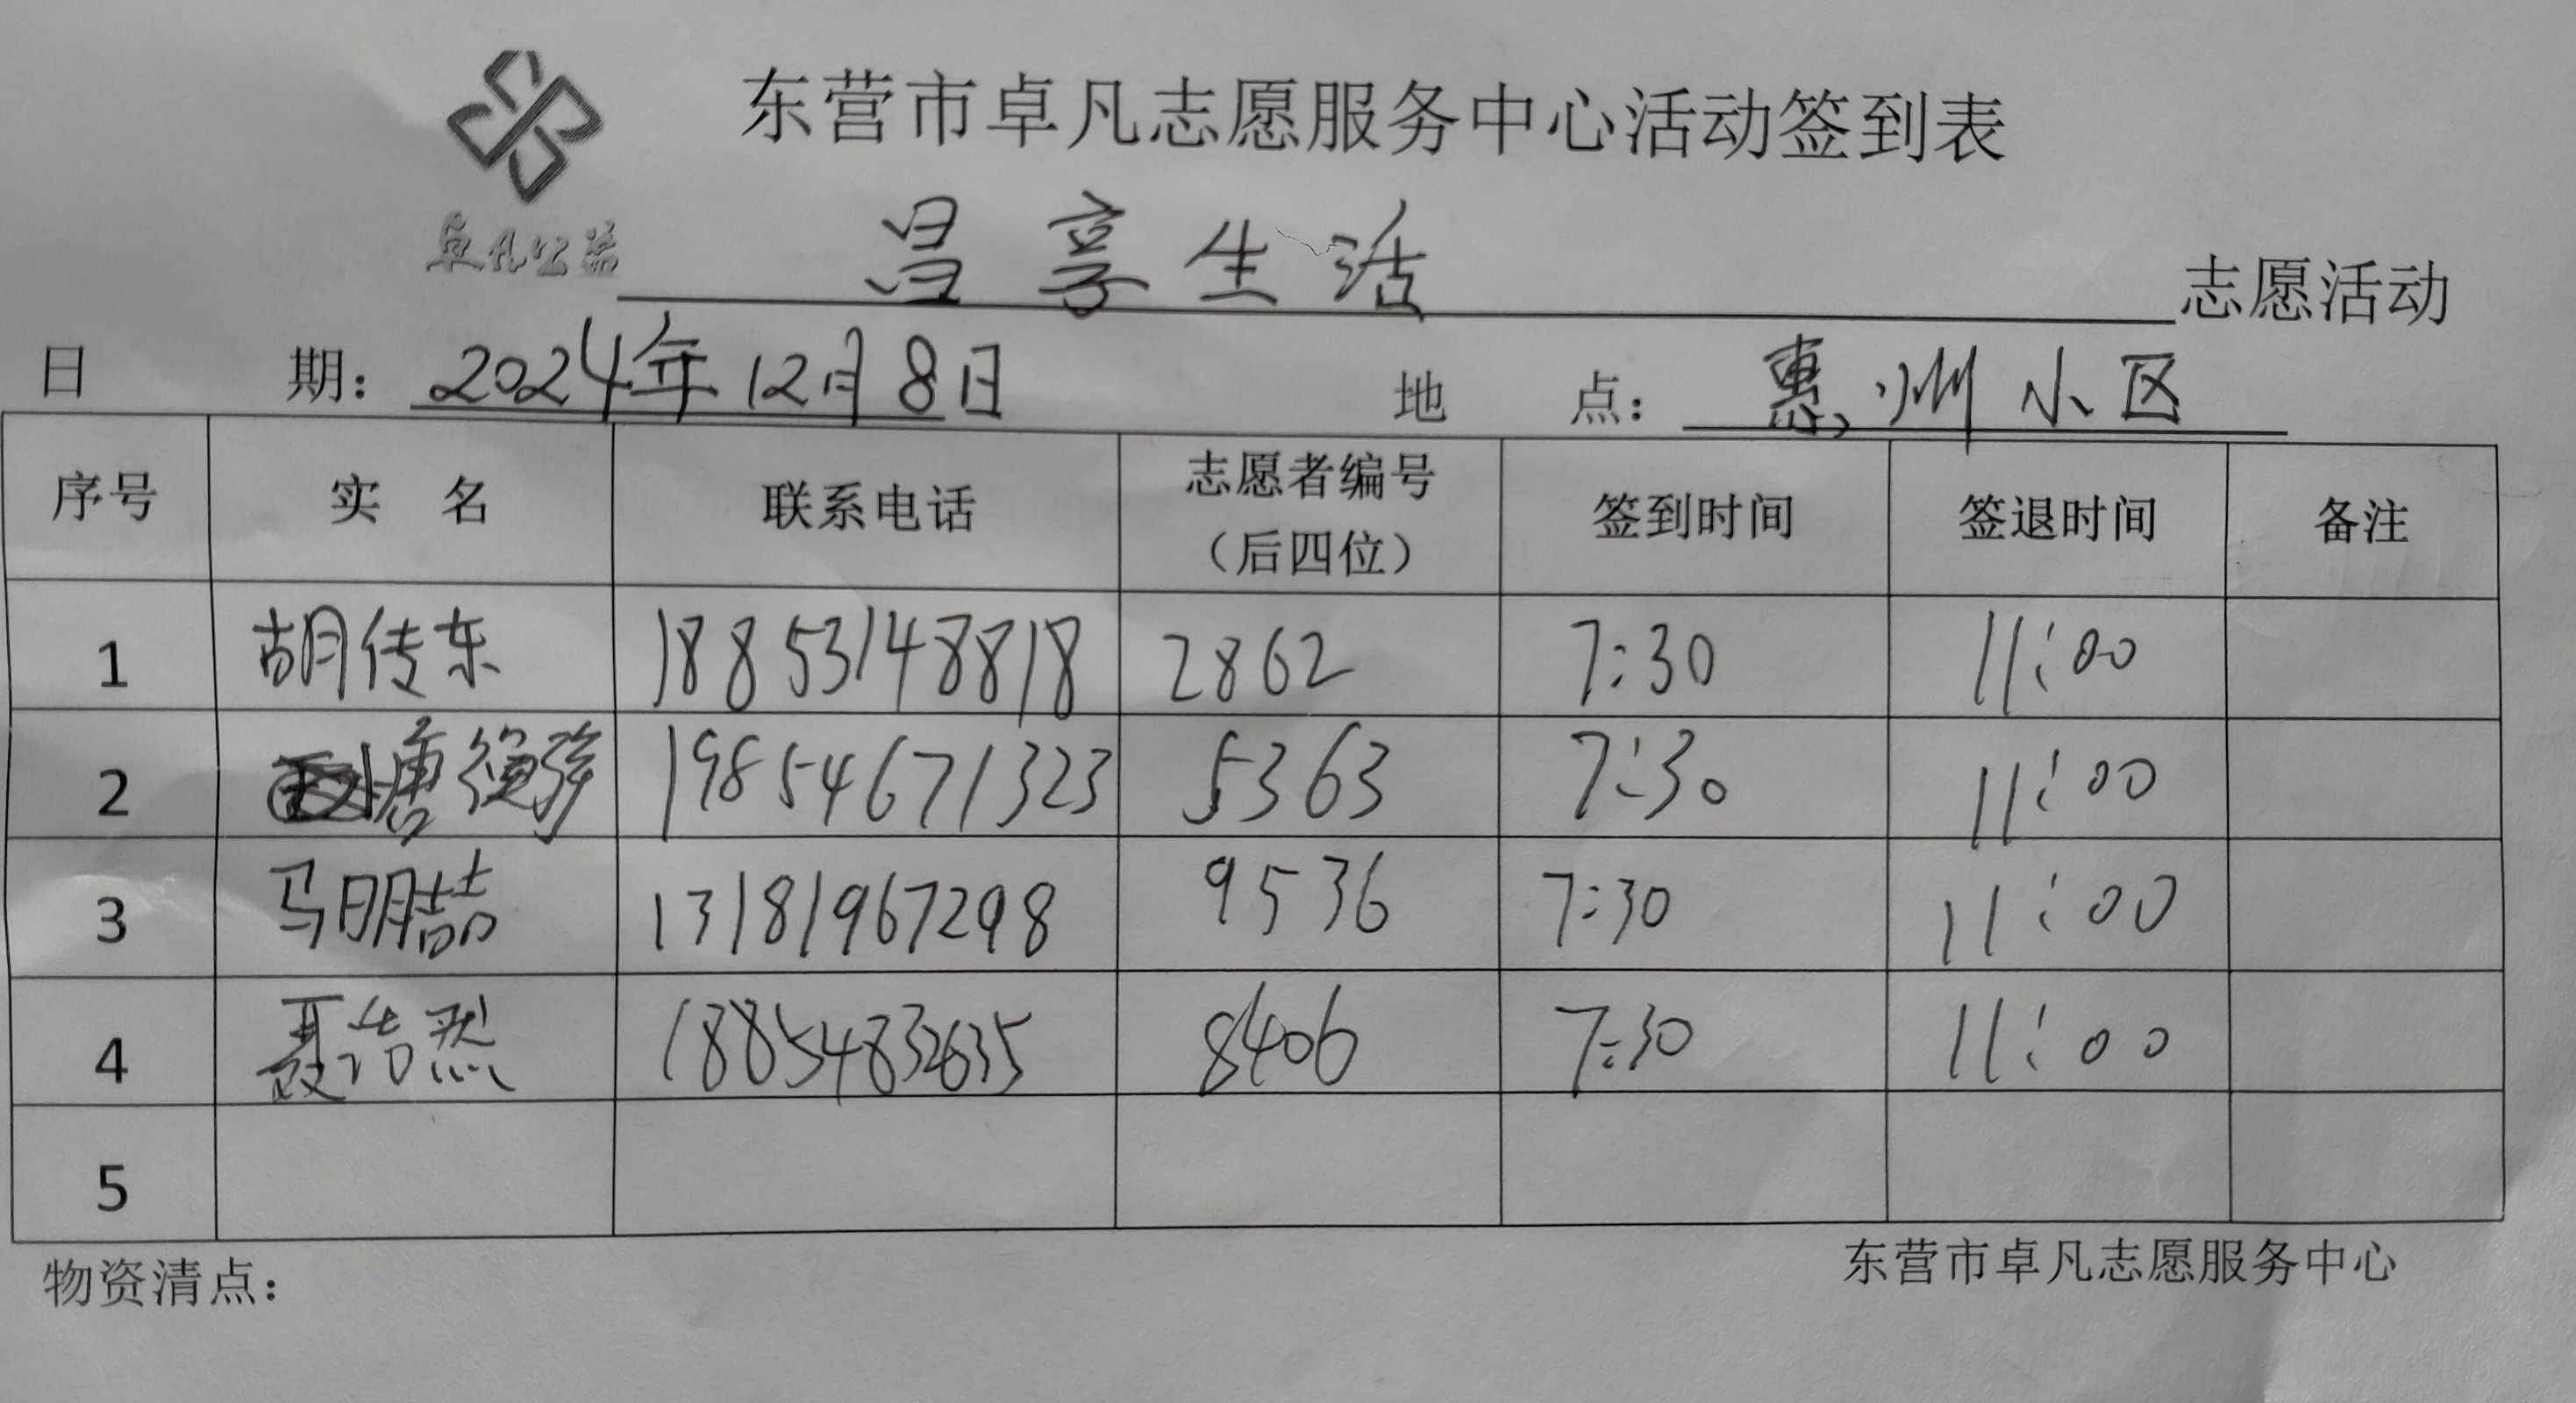 东营市卓凡志愿服务中心活动签到表
卓凡公益
昌享生活 志愿活动
日 期： 2024年12月8日 地 点： 惠州小区
序号 实 名 联系电话 志愿者编号（后四位） 签到时间 签退时间 备注
1 胡传东 18853148818 2862 7:30 11:00
2 唐 19854671323 5363 7:30 11:00
3 马明喆 13181967298 9536 7:30 11:00
4 聂浩然 18854832635 8406 7:30 11:00
5
物资清点： 东营市卓凡志愿服务中心